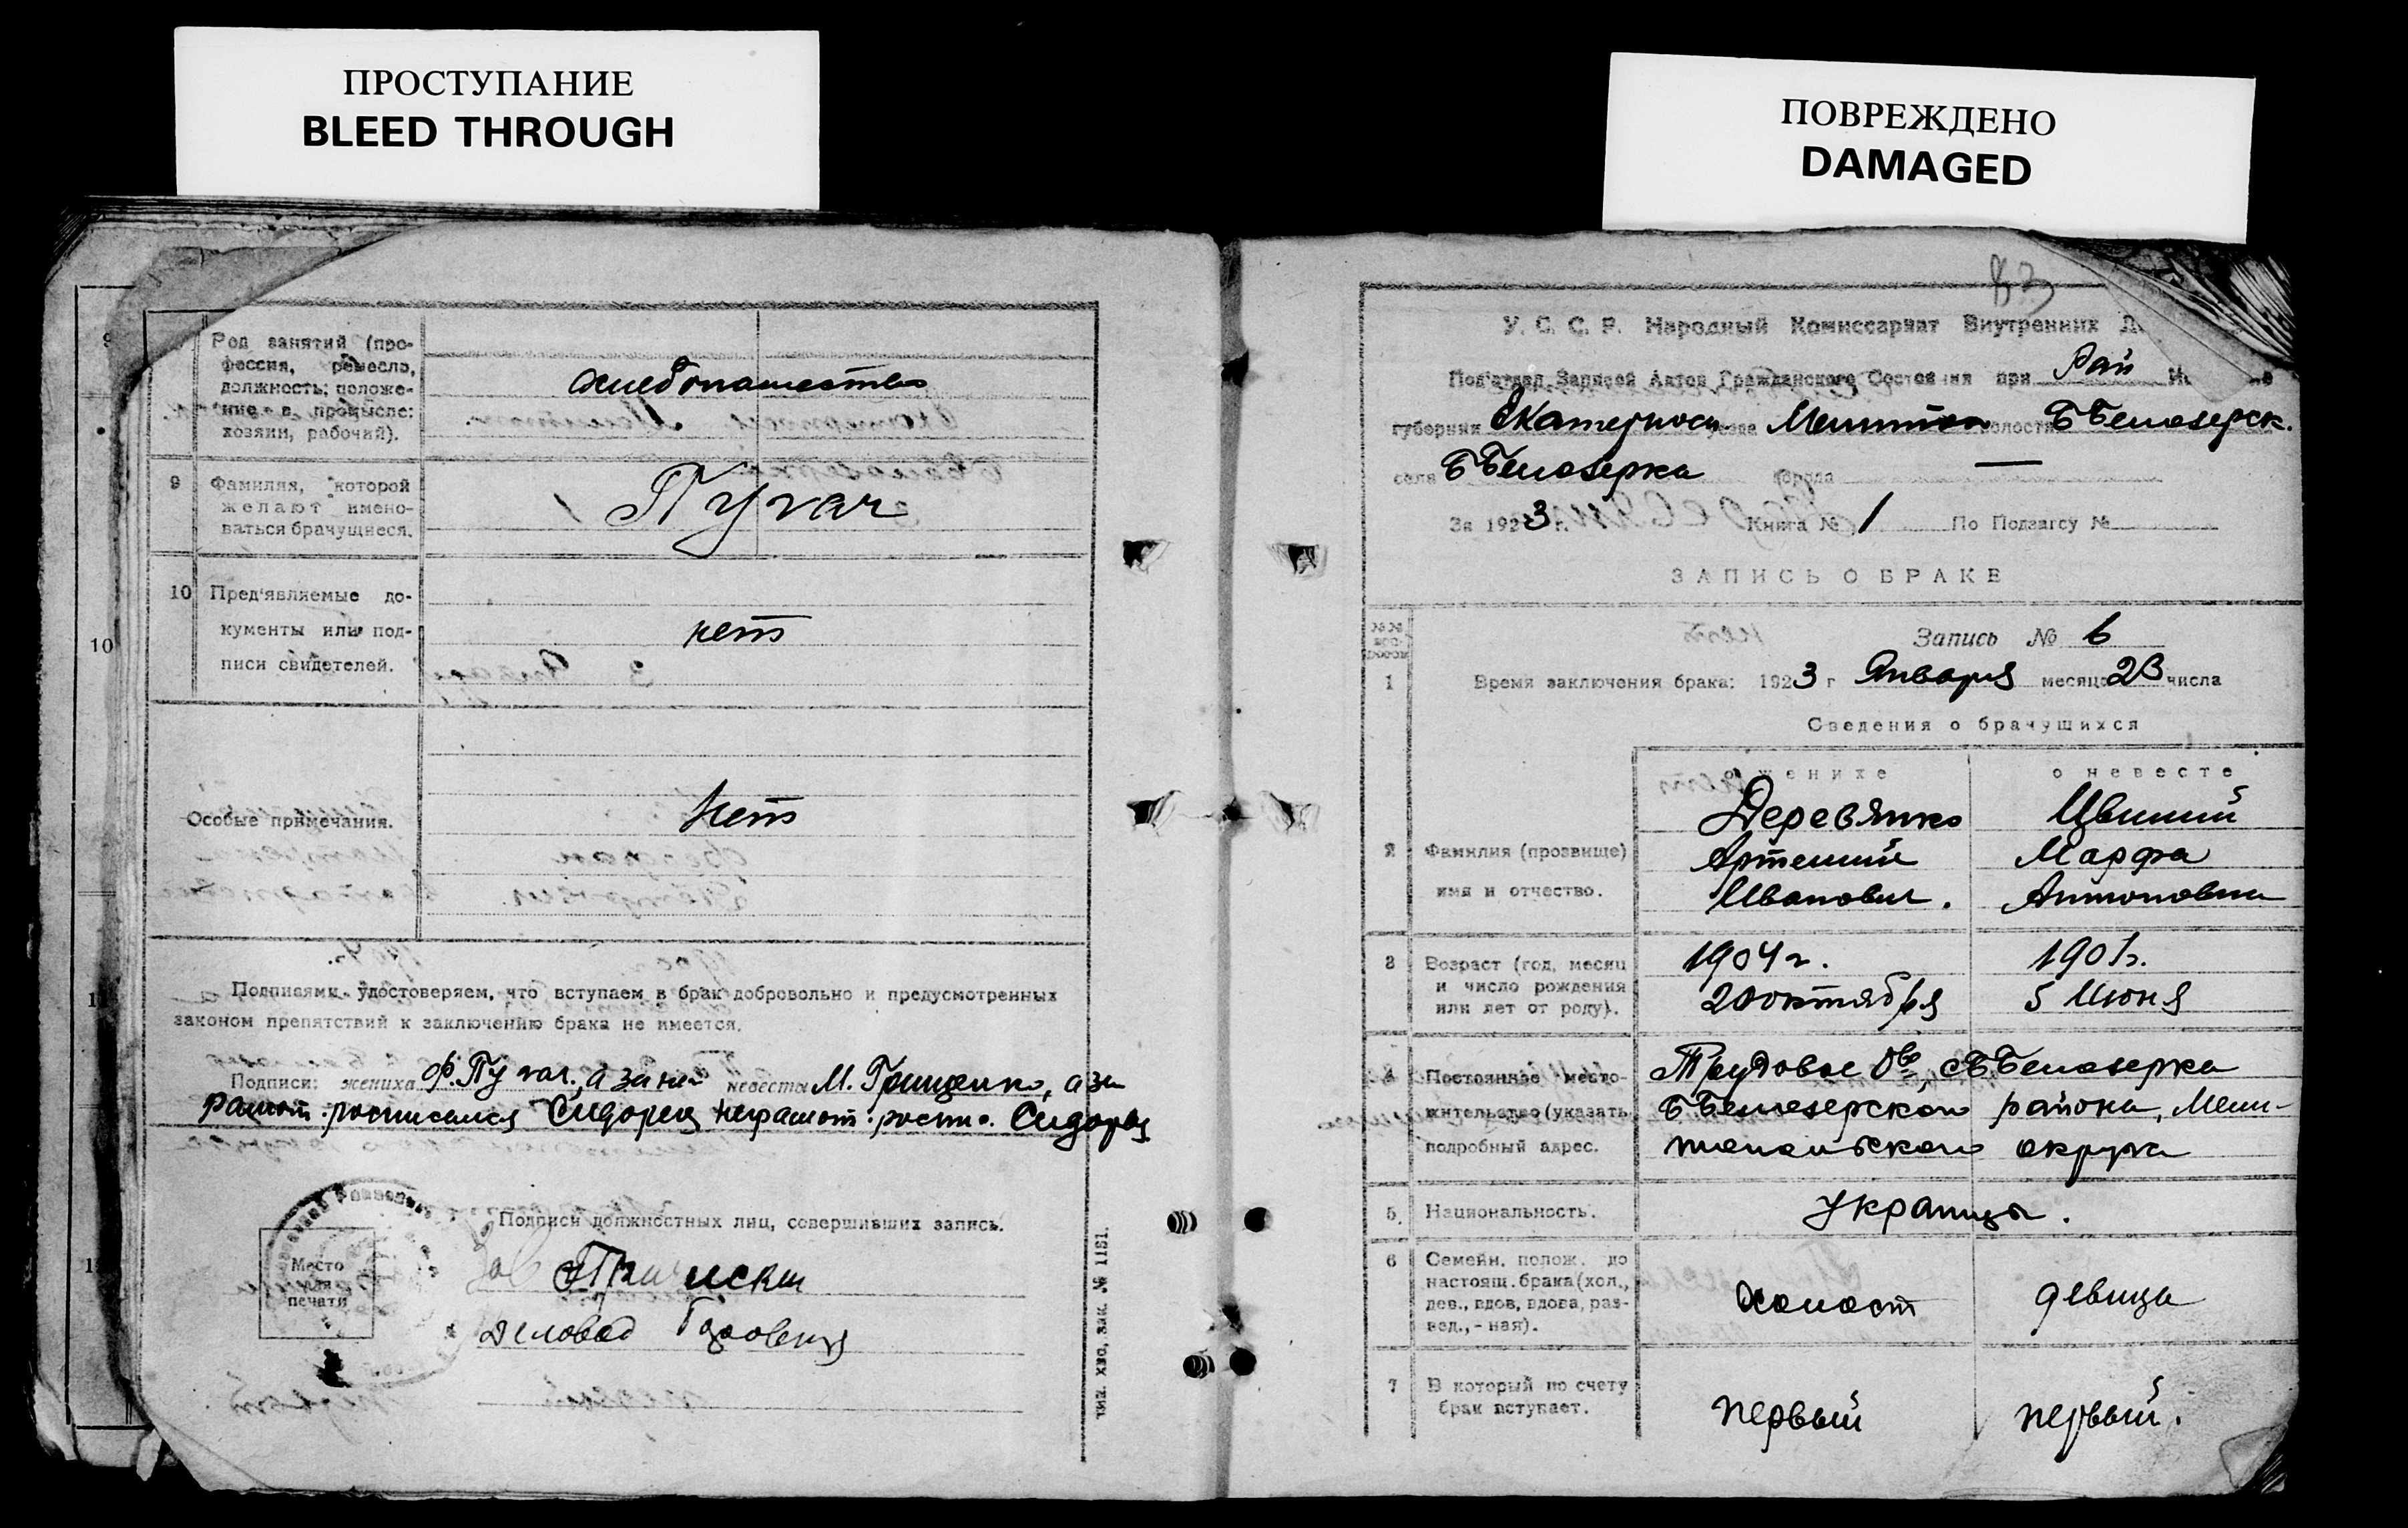 ПРОСТУПАНИЕ
BLEED THROUGH
ПОВРЕЖДЕНО
DAMAGED
9
10
Род занятий (про-
фессия, ремесло,
должность; положе-
ние в промысле:
хозяин, рабочий).
хлебопашество
9 Фамилия, которой
желают имено-
ваться брачущиеся.
Пугач
10 Пред'являемые до-
кументы или под-
писи свидетелей.
нет
Особые примечания.
Нет
Подписями удостоверяем, что вступаем в брак добровольно и предусмотренных
законом препятствий к заключению брака не имеется.
Подписи: жениха Ф. Пугач, а за не невесты М. Грищенко, а за
грамот. росписался Сидорец неграмот. роспис. Сидорец
Подписи должностных лиц, совершивших запись.
Место
для
печати
Зав
Деловод
тип. хво, зак. № 1181.
83
У. С. С. Р. Народный Комиссариат Внутренних Д
Под'отдел Записей Актов Гражданского Состояния при Рай
губернии Екатеринос. уезда Мелитоп волости Б Белозерск.
села Б Белозерка города —
За 1923 г. Книга № 1 По Подзагсу №
ЗАПИСЬ О БРАКЕ
Запись № 6
1 Время заключения брака: 1923 г Января месяца 23 числа
Сведения о брачущихся
о женихе о невесте
2 Фамилия (прозвище)
имя и отчество.
Деревянко
Артемий
Иванович.
Цвилий
Марфа
Антоновна
3 Возраст (год, месяц
и число рождения
или лет от роду).
1904 г.
20 октября
1901 г.
5 Июня
4 Постоянное место-
жительство (указать
подробный адрес.
Трудовое Об-во, с Б Белозерка
Б Белозерского района, Мели-
топольского округа
5. Национальность.
Украинцы.
6 Семейн. полож. до
настоящ. брака (хол.,
дев., вдов, вдова, раз-
вед., - ная).
холост
девица
7 В который по счету
брак вступает.
первый
первый.